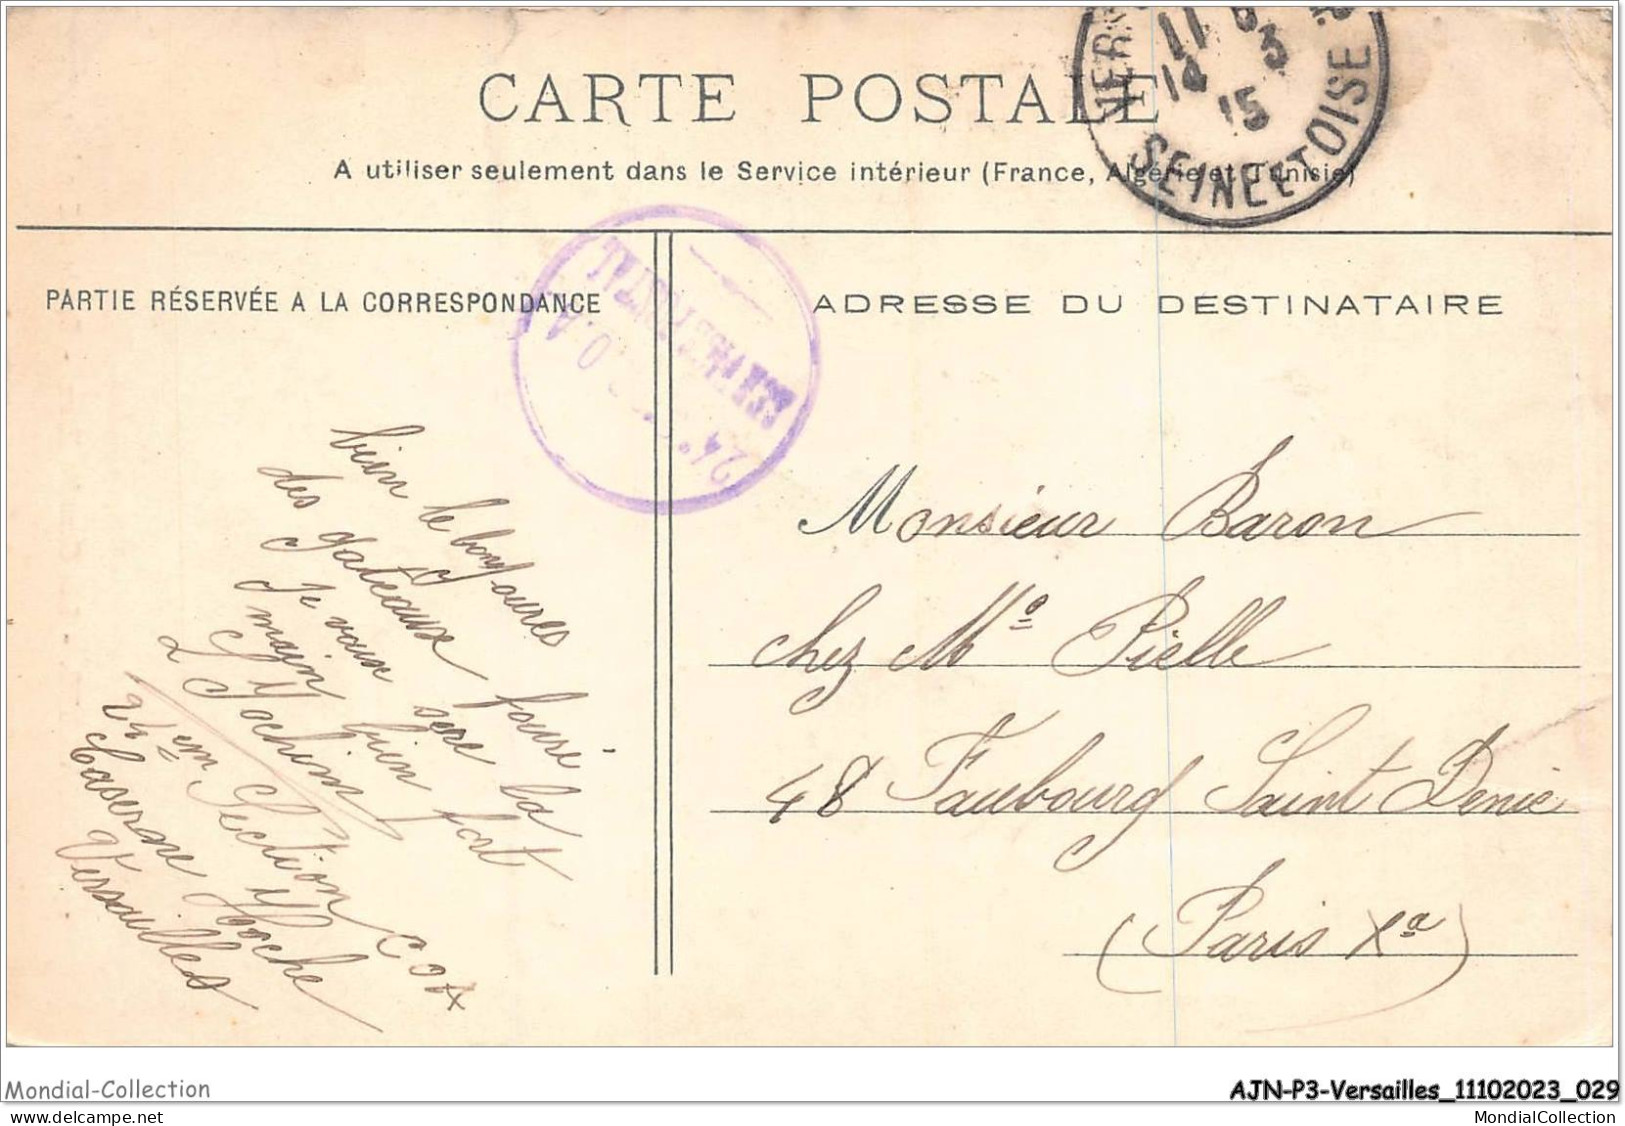 CARTE POSTALE
A utiliser seulement dans le Service intérieur (France, Algérie et Tunisie)
VER
11
14 3
15
SEINE ET OISE
PARTIE RÉSERVÉE A LA CORRESPONDANCE
ADRESSE DU DESTINATAIRE
24
bien le bonjour
des gateaux fourré
Je vous sere la
main bien fort
Jochim
24 em Section C O A
Caserne Hoche
Versailles
Monsieur Baron
chez Me Pielle
48 Faubourg Saint Denie
(Paris Xa)
Mondial-Collection
delcampe.net
AJN-P3-Versailles_11102023_029
MondialCollection